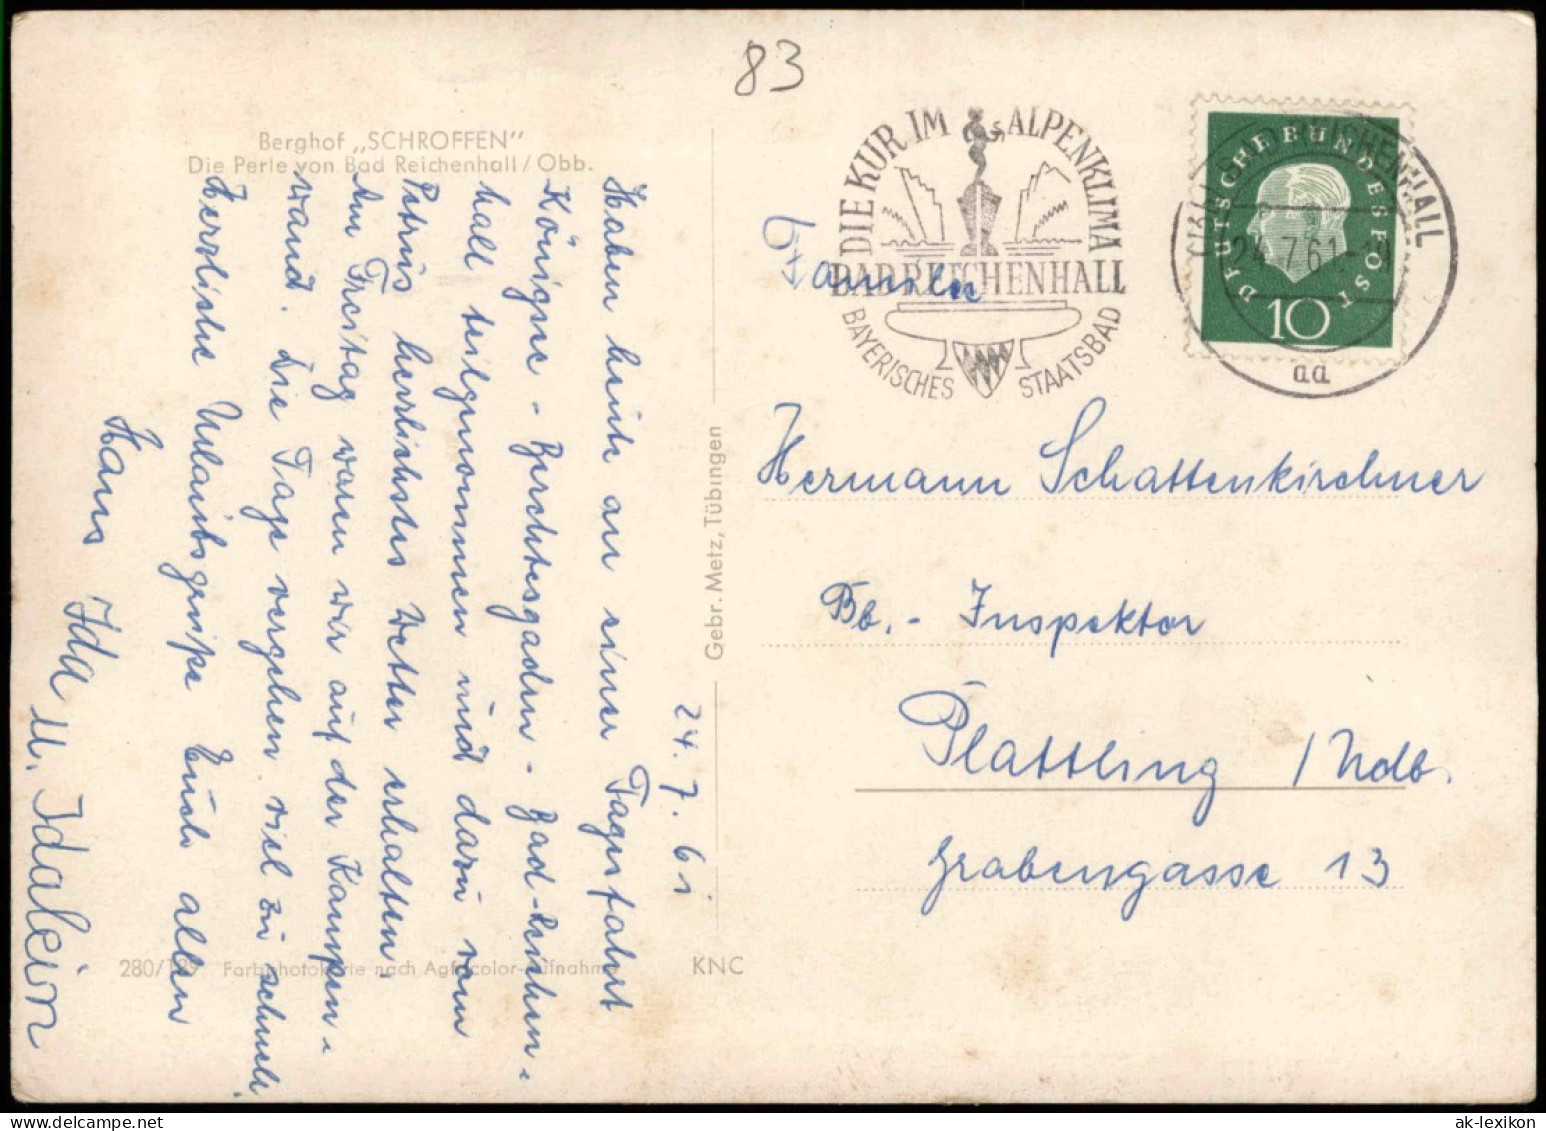 83
Berghof „SCHROFFEN"
Die Perle von Bad Reichenhall/Obb.
24. 7. 61
Haben heute an einer Tagesfahrt
Königsee - Berchtesgaden - Bad-Reichen-
hall teilgenommen und dazu vom
Petrus herrlichstes Wetter erhalten.
Am Freitag waren wir auf der Kampen-
wand. Die Tage vergehen viel zu schnell
Herzliche Urlaubsgrüße Euch allen
Hans Ida u. Idalein
280/189 Farbphotokarte nach Agfacolor-Aufnahme
KNC
Gebr. Metz, Tübingen
DIE KUR IM ALPENKLIMA
BAD REICHENHALL
BAYERISCHES STAATSBAD
BAD REICHENHALL
24. 7. 61
aa
DEUTSCHE BUNDESPOST
10
Familie
Hermann Schattenkirchner
Bb. - Inspektor
Plattling / Ndb.
Grabengasse 13
ak-lexikon